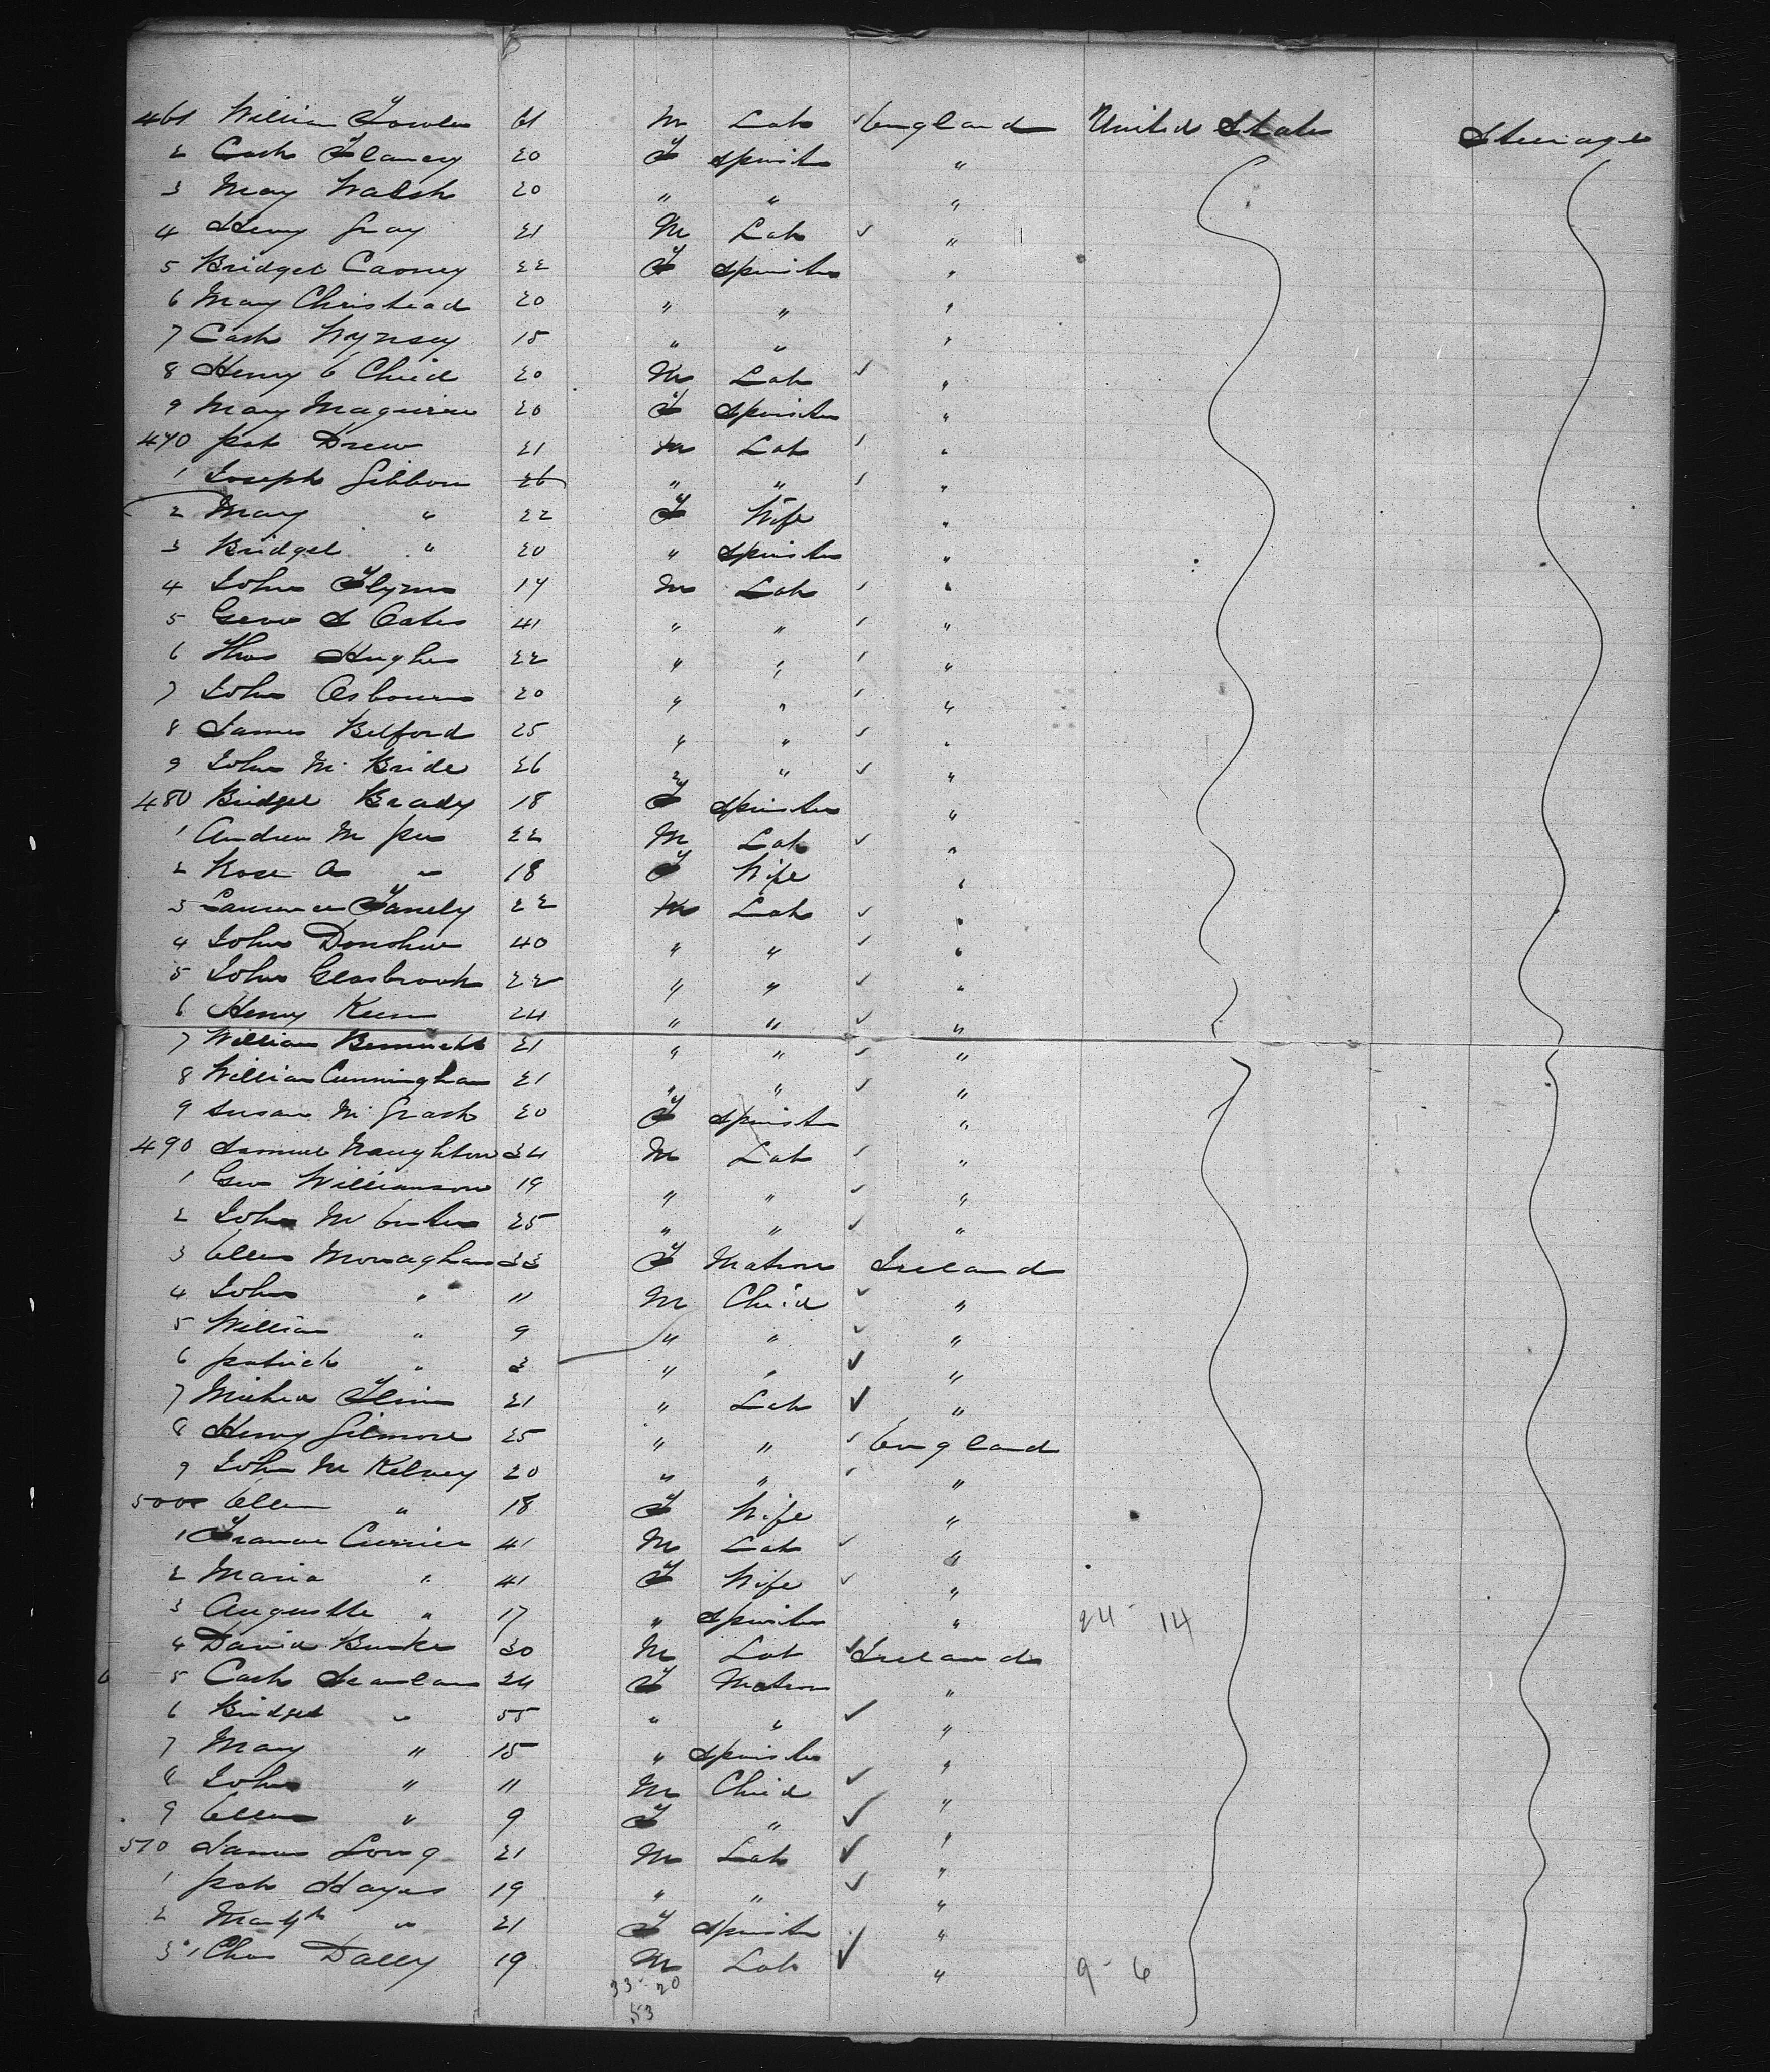 461 William Fowler 61 M Lab ✓ England United States Steerage
2 Cath Clancy 20 F Spinster "
3 Mary Walsh 20 " " "
4 Henry Gray 21 M Lab ✓ "
5 Bridget Caoney 22 F Spinster "
6 Mary Christead 20 " " "
7 Cath 15 " " "
8 Henry E Chied 20 M Lab ✓ "
9 Mary Maguiree 20 F Spinster "
470 Pat Drew 21 M Lab ✓ "
1 Joseph Gibbon 26 " " ✓ "
2 Mary " 22 F Wife "
3 Bridget " 20 " Spinster "
4 John Flynn 17 M Lab ✓ "
5 Geno S Oates 41 " " ✓ "
6 Thos Hughes 22 " " ✓ "
7 John Osbourn 20 " " ✓ "
8 James Belford 25 " " ✓ "
9 John Mc Bride 26 " " ✓ "
480 Bridget Brady 18 F Spinster "
1 Andrew M 22 M Lab ✓ "
2 Rose A " 18 F Wife "
3 Laurence 22 M Lab ✓ "
4 John Donohue 40 " " ✓ "
5 John Glasbrook 22 " " ✓ "
6 Henry Keen 24 " " ✓ "
7 William 21 " " ✓ "
8 William Cunningham 21 " " ✓ "
9 Susan Mc Grath 20 F Spinster "
490 Samuel Naughton 34 M Lab ✓ "
1 Geo Williamson 19 " " ✓ "
2 John Mc Enter 25 " " ✓ "
3 Ellen Monaghan 33 F Matron Ireland
4 John " 11 M Chied ✓ "
5 William " 9 " " ✓ "
6 Patrick " 3 " " ✓ "
7 Michea Flinn 21 " Lab ✓ "
8 Henry Gilmore 25 " " ✓ England
9 John Mc Kelvey 20 " " ✓ "
500 Ellen " 18 F Wife "
1 Currier 41 M Lab ✓ "
2 Maria " 41 F Wife ✓ "
3 Augustte " 17 " Spinster " 24 - 14
4 David Burke 30 M Lab ✓ Ireland
5 Cath Scanlan 34 F Matron "
6 Bridget " 55 " " ✓ "
7 Mary " 15 " Spinster "
8 John " 11 M Chied ✓ "
9 Ellen " 9 F " ✓ "
510 James Long 21 M Lab ✓ "
1 Pat Hayes 19 " " ✓ "
2 Margt " 21 F Spinster "
3 Chas Dally 19 M Lab ✓ " 9 - 6
33 - 20
53